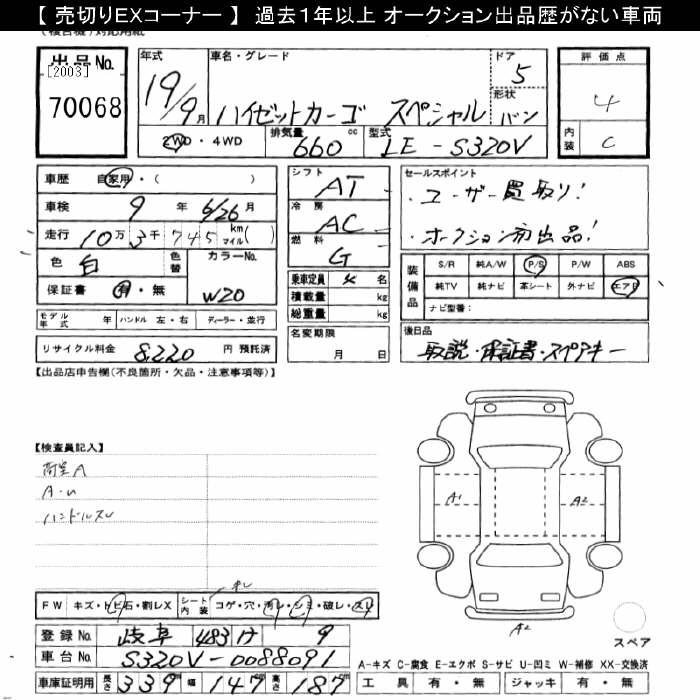 【 売切りEXコーナー 】 過去1年以上 オークション出品歴がない車両
出品No.
[2003]
70068
年式
19/9月
車名・グレード
ハイゼットカーゴ スペシャル
ドア
5
形状
バン
2WD・4WD
排気量
660 cc
型式
LE-S320V
評価点
4
内装
C
車歴 自家用・( )
車検 9 年 6/26 月
走行 10万 3千 745 km マイル( )
色 白
色替
カラーNo.
W20
保証書 有・無
モデル年式 年 ハンドル 左・右 ディーラー・並行
リサイクル料金 8,220 円 預託済
シフト
AT
冷房
AC
燃料
G
乗車定員 名
積載量 kg
総重量 kg
名変期限
月 日
セールスポイント
・ユーザー買取り!
・オークション初出品!
装備品
S/R 純A/W P/S P/W ABS
純TV 純ナビ 革シート 外ナビ エアB
ナビ型番:
後日品
取説・保証書・スペアキー
【出品店申告欄(不良箇所・欠品・注意事項等)】
【検査員記入】
荷室A
A・U
ハンドルスレ
A1
A2
A2
スペア
FW キズ・トビ石・割レX
シート内装 コゲ・穴・汚レ・シミ・破レ・スレ
登録No. 岐阜 483 け 9
車台No. S320V-0088091
車庫証明用 長さ 339 m 幅 147 m 高さ 187 m
A-キズ C-腐食 E-エクボ S-サビ U-凹ミ W-補修 XX-交換済
工具 有・無 ジャッキ 有・無